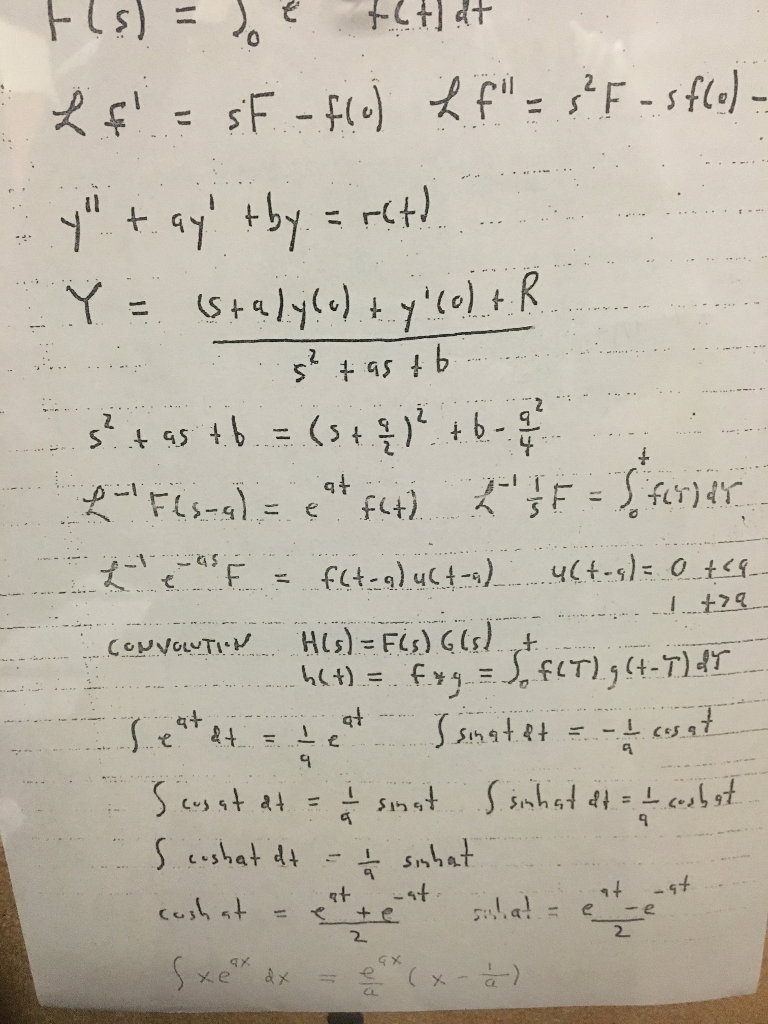 F(s) = ∫₀ e f(t) dt
ℒ f' = sF - f(0) ℒ f'' = s²F - sf(0) -
y'' + ay' + by = r(t)
Y = ((s+a)y(0) + y'(0) + R)/(s² + as + b)
s² + as + b = (s + a/2)² + b - a²/4
ℒ⁻¹ F(s-a) = e^{at} f(t) ℒ⁻¹ 1/s F = ∫₀ᵗ f(τ) dτ
ℒ⁻¹ e^{-as} F = f(t-a) u(t-a) u(t-a) = 0 t<a
1 t>a
CONVOLUTION H(s) = F(s) G(s)
h(t) = f * g = ∫₀ᵗ f(τ) g(t-τ) dτ
∫ e^{at} dt = 1/a e^{at} ∫ sin at dt = -1/a cos at
∫ cos at dt = 1/a sin at ∫ sinh at dt = 1/a cosh at
∫ cosh at dt = 1/a sinh at
cosh at = (e^{at} + e^{-at})/2 sinh at = (e^{at} - e^{-at})/2
∫ xe^{ax} dx = e^{ax}/a (x - 1/a)